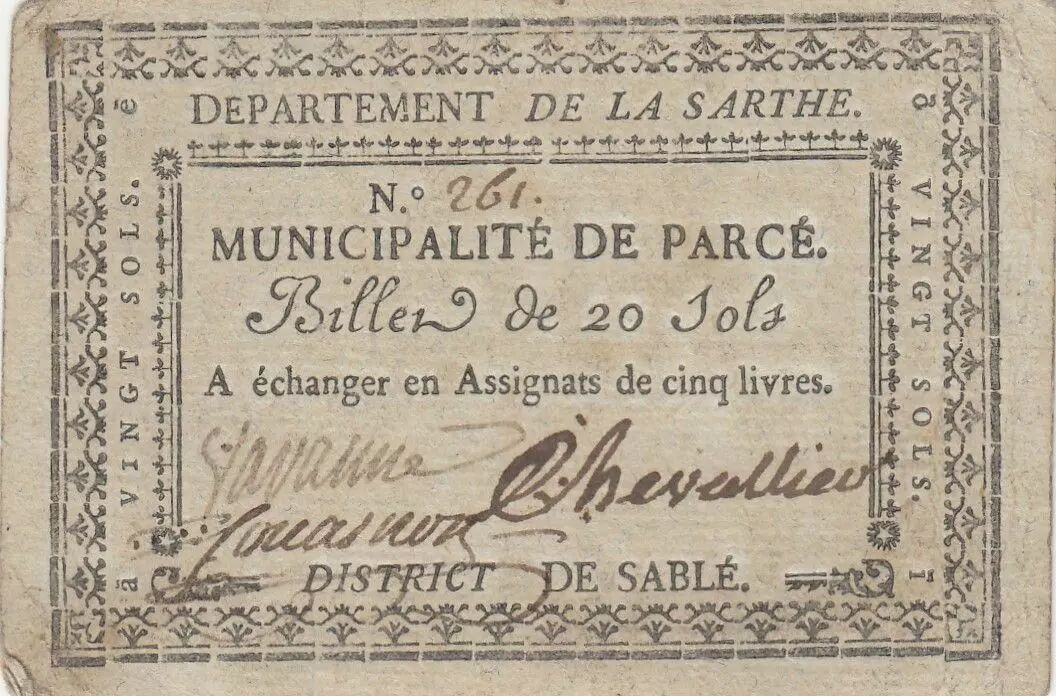 DEPARTEMENT DE LA SARTHE.
N.° 261.
MUNICIPALITÉ DE PARCÉ.
Billet de 20 Sols
A échanger en Assignats de cinq livres.
Chevallier
DISTRICT DE SABLÉ.
ā VINGT SOLS. ē
ō VINGT SOLS. ī